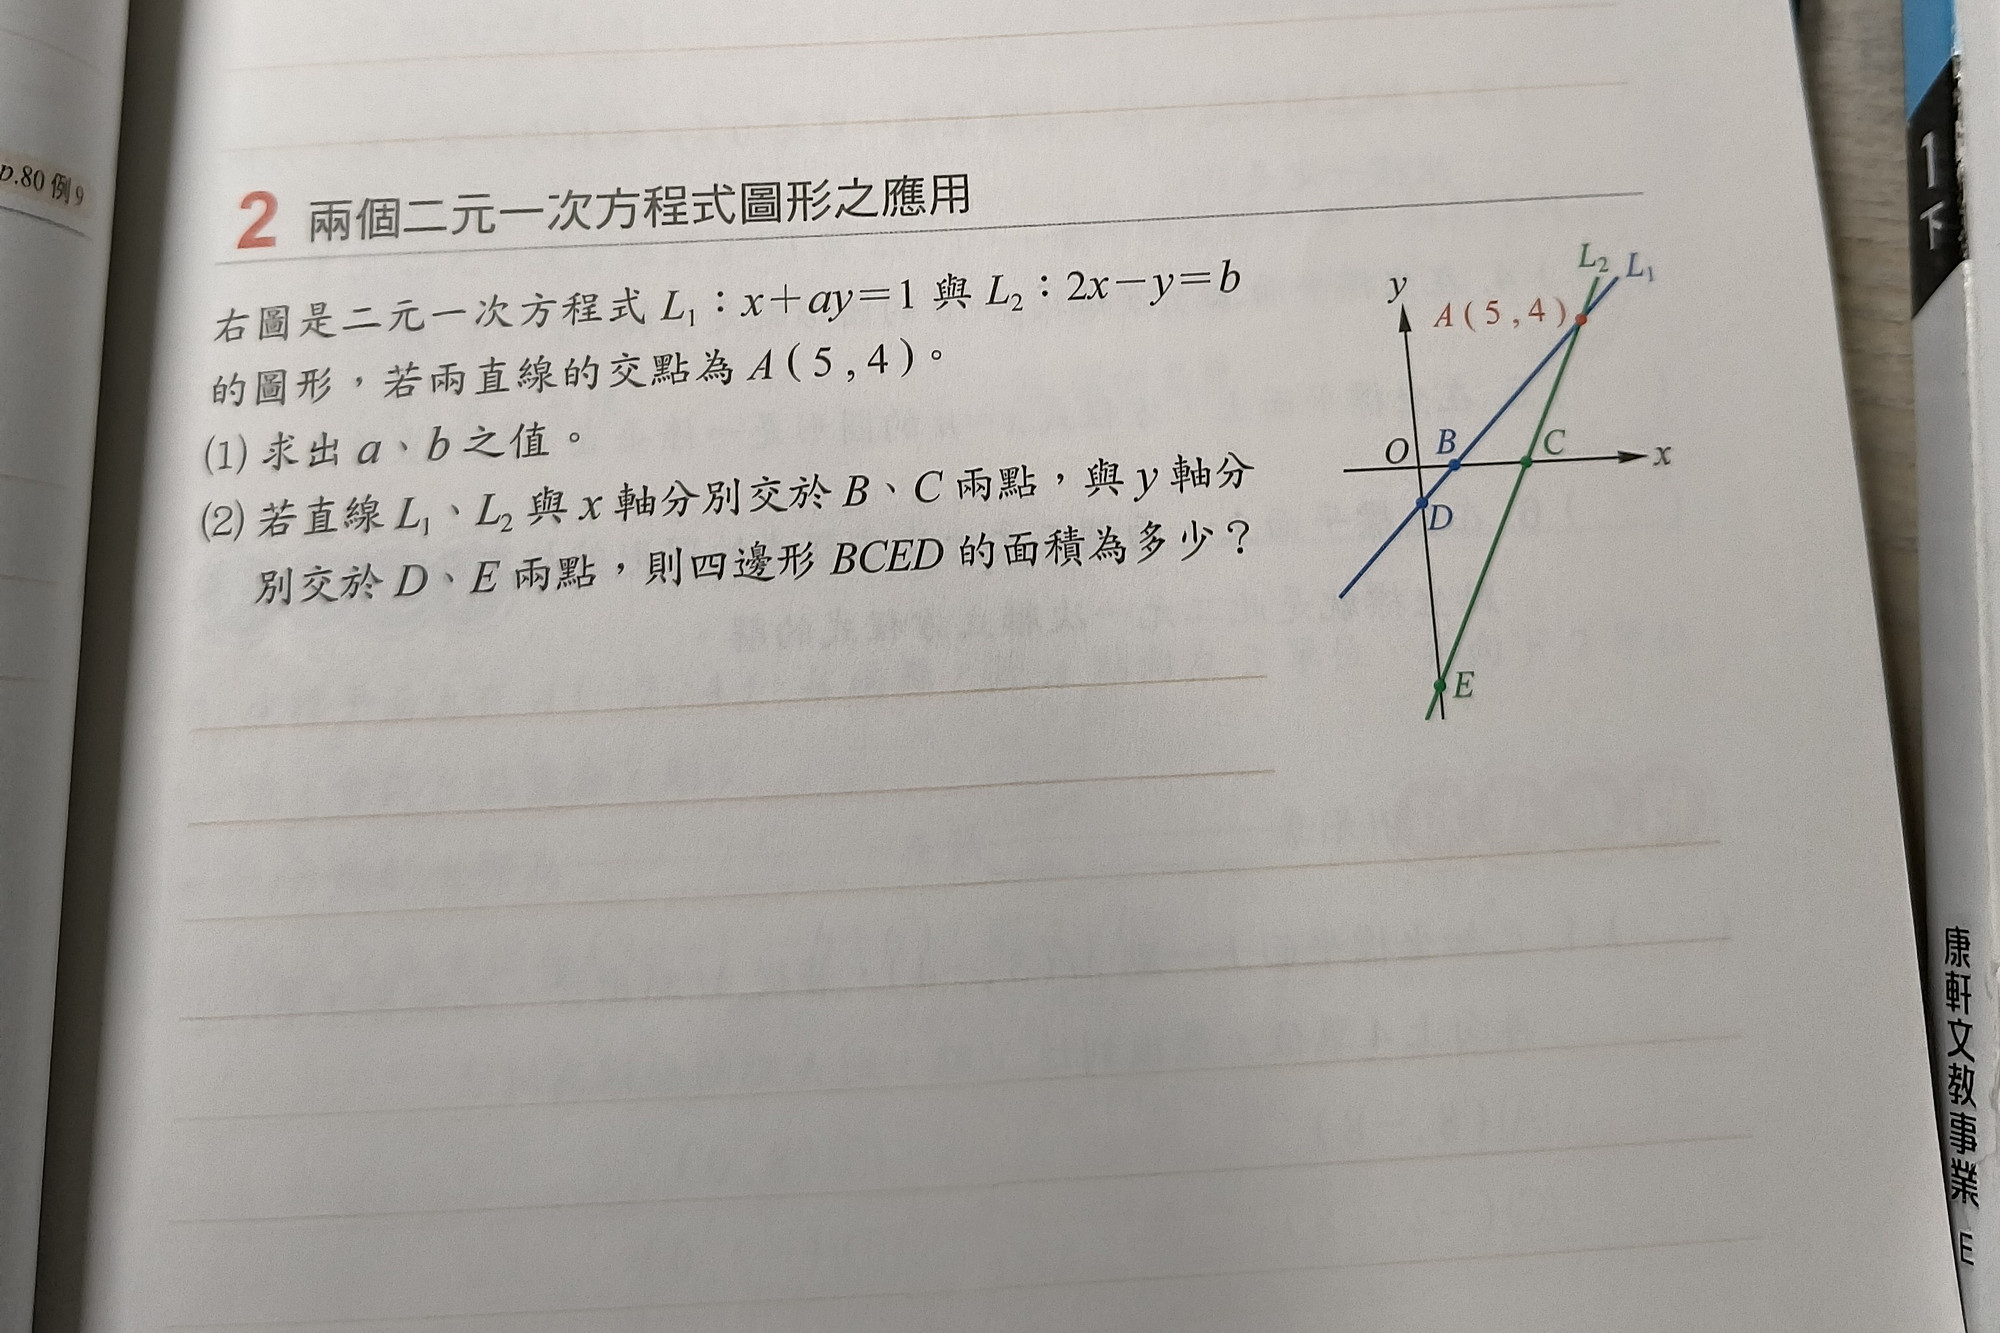 p.80 例9
2 兩個二元一次方程式圖形之應用
右圖是二元一次方程式 L₁：x＋ay＝1 與 L₂：2x－y＝b
的圖形，若兩直線的交點為 A（5 , 4）。
(1) 求出 a、b 之值。
(2) 若直線 L₁、L₂ 與 x 軸分別交於 B、C 兩點，與 y 軸分
別交於 D、E 兩點，則四邊形 BCED 的面積為多少？
L₂ L₁
y
A ( 5 , 4 )
O B C x
D
E
1
下
康軒文教事業